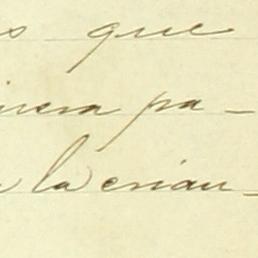 s que
ivera pa-
la crian-